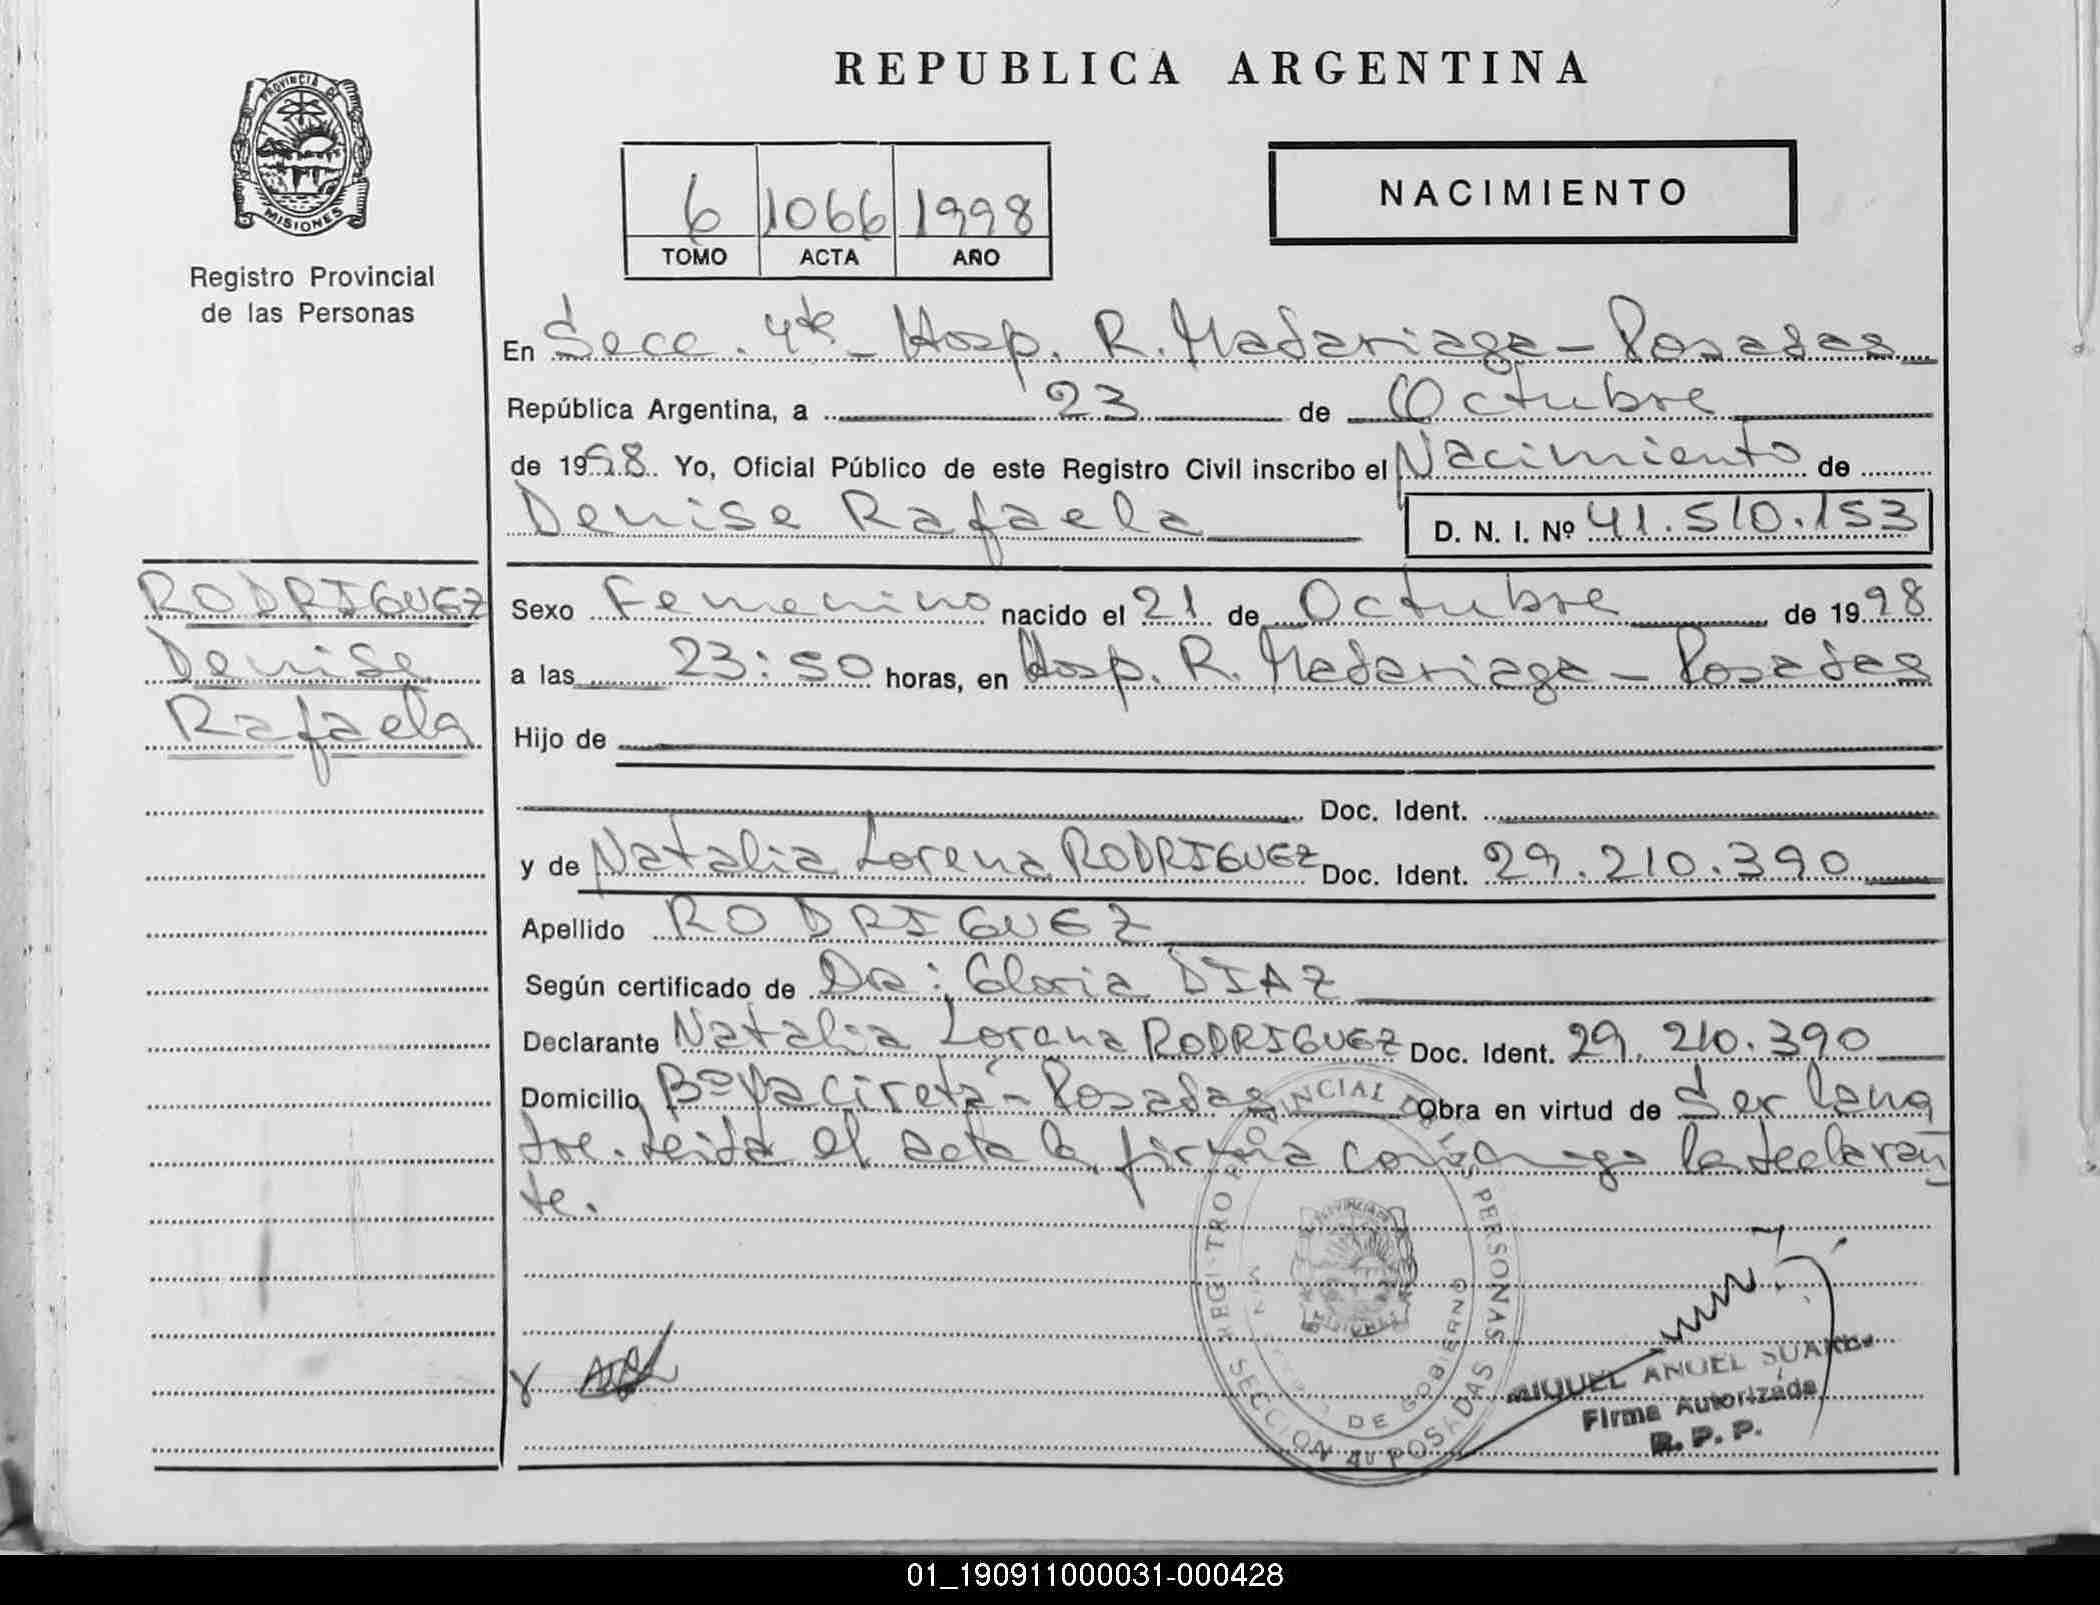 REPUBLICA ARGENTINA
PROVINCIA DE
MISIONES
Registro Provincial
de las Personas
NACIMIENTO
6 1066 1998
TOMO ACTA AÑO
En Secc. 4ta - Hosp. R. Madariaga - Posadas
República Argentina, a 23 de Octubre
de 1998. Yo, Oficial Público de este Registro Civil inscribo el Nacimiento de
Denise Rafaela
D. N. I. Nº 41.510.153
RODRIGUEZ
Denise
Rafaela
Sexo Femenino nacido el 21 de Octubre de 1998
a las 23:50 horas, en Hosp. R. Madariaga - Posadas
Hijo de
Doc. Ident.
y de Natalia Lorena RODRIGUEZ Doc. Ident. 29.210.390
Apellido RODRIGUEZ
Según certificado de Dra: Gloria DIAZ
Declarante Natalia Lorena RODRIGUEZ Doc. Ident. 29.210.390
Domicilio Bº Yaciretá - Posadas Obra en virtud de Ser la ma
dre. Leida el acta la firma conmigo la declaran
te.
REGISTRO PROVINCIAL DE LAS PERSONAS
DE GOBIERNO
SECCION 4ta POSADAS
MIGUEL ANGEL SUAREZ
Firma Autorizada
R. P. P.
01_190911000031-000428